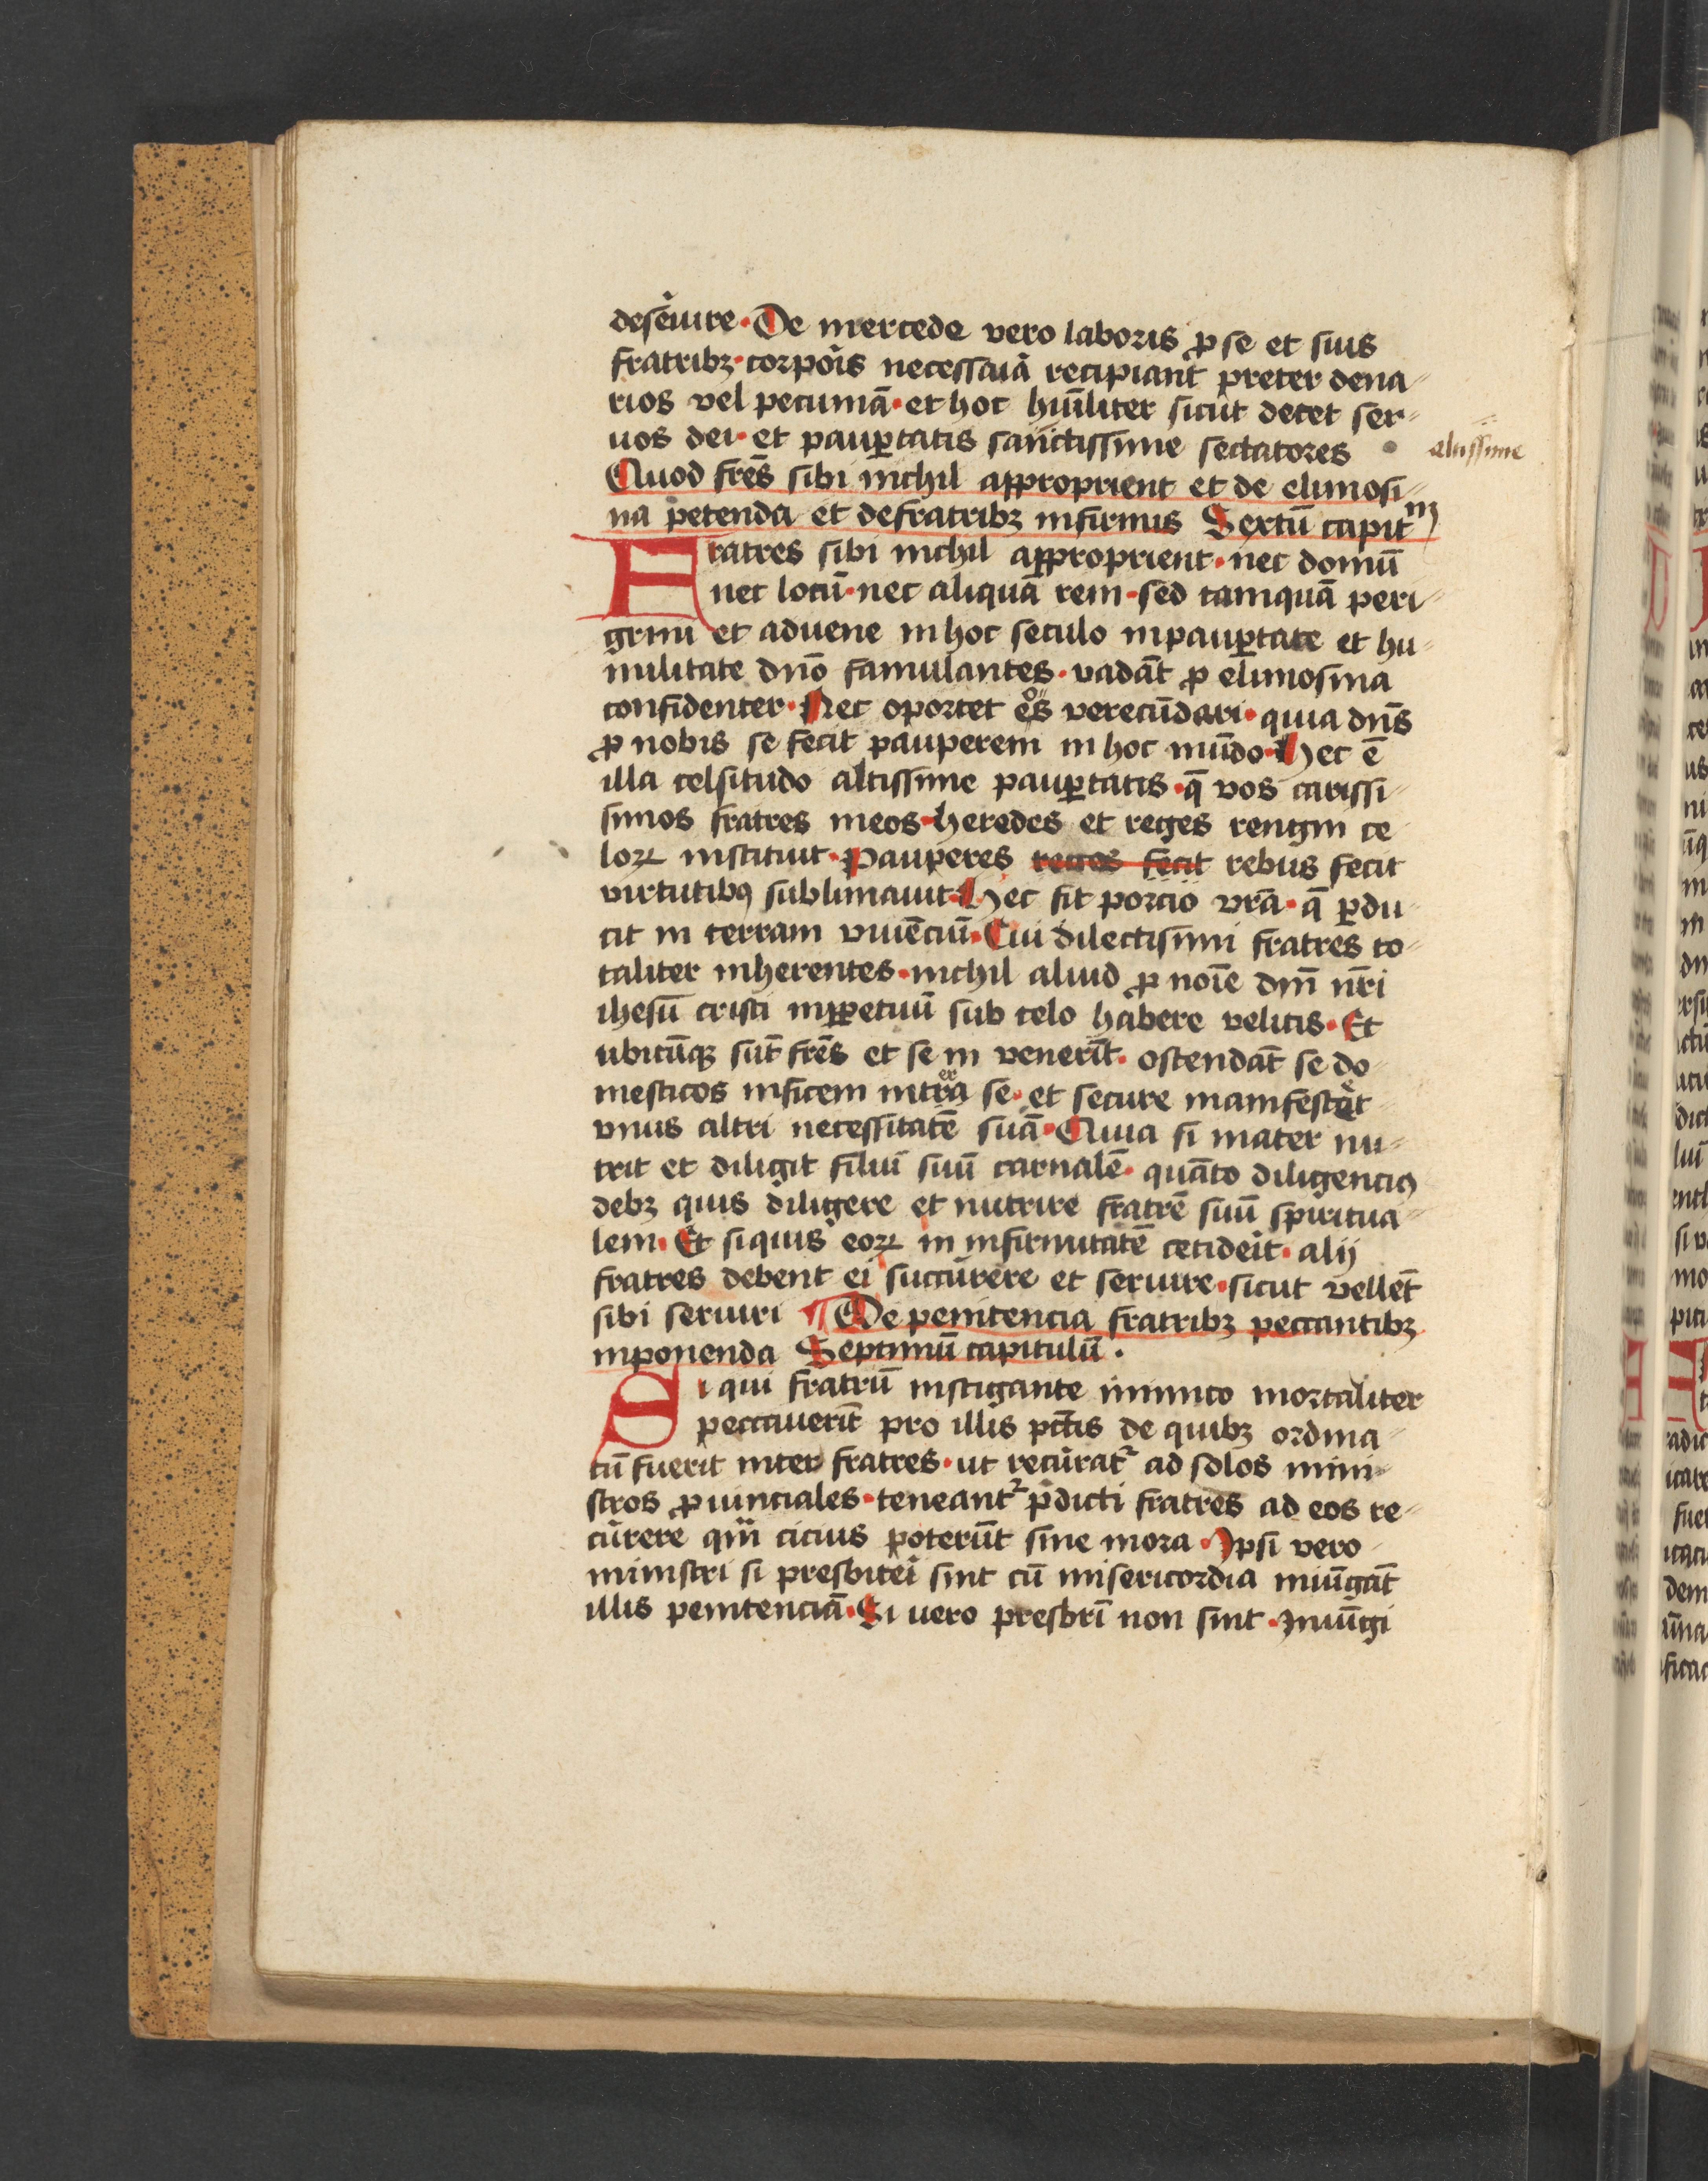 deseruire · De mercede vero laboris ꝑ se et suis
fratribꝫ · corporis necessaria recipiant preter dena⸗
rios vel pecuniā · et hoc hūiliter sicut decet ser⸗
uos dei · et pauꝑtatis sanctissime sectatores altissime
Quod frēs sibi nichil approprient et de elimosi⸗
na petenda et de fratribꝫ infirmis Sextū capitᵐ
Fratres sibi nichil approprient · nec domū
nec locū · nec aliquā rem · sed tamquā peri⸗
grini et aduene in hoc seculo in pauꝑtate et hu⸗
militate dn̄o famulantes · vadāt ꝓ elimosina
confidenter · Nec oportet eos verecūdari · quia dn̄s
ꝓ nobis se fecit pauperem in hoc mūdo · Hec ē
illa celsitudo altissime pauꝑtatis · q̄ vos carissi⸗
simos fratres meos · heredes et reges rengni ce⸗
loꝝ instituit · Pauperes reges fecit rebus fecit
virtutibꝯ sublimauit · Hec sit porcio vr̄a · q̄ ꝑdu⸗
cit in terram viuēciū · Cui dilectisimi fratres to⸗
taliter inherentes · nichil aliud ꝓ noīe dn̄i nr̄i
ihesū cristi inꝑpetuū sub celo habere velitis · Et
ubicūqꝫ sūt frēs et se in venerīt · ostendāt se do⸗
mesticos inficem intra er se · et secure manifestēt
vnus altri necessitatē suā · Quia si mater nu⸗
trit et diligit filiū suū carnalē · quāto diligenciꝯ
debꝫ quis diligere et nutrire fratrē suū spiritua⸗
lem · Et si quis eoꝝ in infirmitatē cecideit · alij
fratres debent ei succurere et seruire · sicut vellēt
sibi seruiri ¶ De penitencia fratribꝫ peccantibꝫ
inponenda Septimū capitulū ·
Si qui fratrū instigante inimico mortaliter
peccauerīt pro illis pctīs de quibꝫ ordina⸗
tū fuerit inter fratres · ut recurat᷑ ad solos mini⸗
stros ꝓuinciales · teneant᷑ p̄dicti fratres ad eos re⸗
curere qm̄ cicius poterūt sine mora · Ipsi vero
ministri si presbiteri sint cū misericordia iniūgāt
illis penitenciā · Si uero presbr̄i non sint · Iniūgi